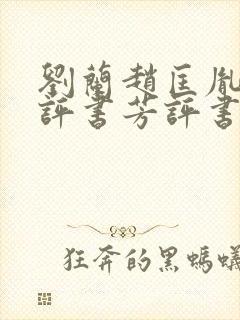 劉蘭趙匡胤
評書芳評書
狂奔的黑螞蟻